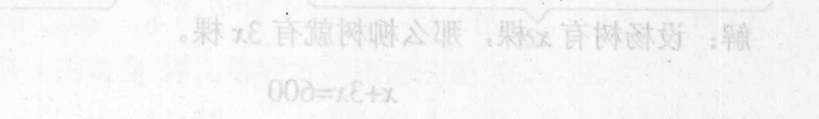 解：设杨树有 x 棵，那么柳树就有 3x 棵。
x+3x=600